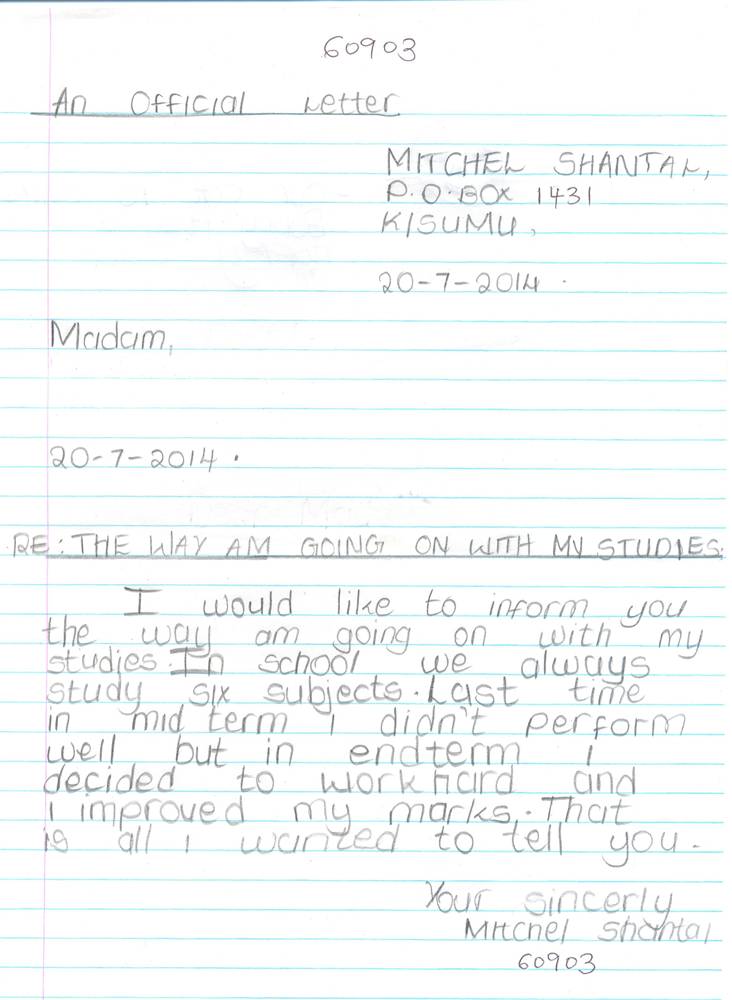 60903
An Official Letter
MITCHEL SHANTAL,
P.O.BOX 1431
KISUMU,
20-7-2014.
Madam,
20-7-2014.
RE: THE WAY AM GOING ON WITH MY STUDIES.
I would like to inform you
the way am going on with my
studies. In school we always
study six subjects. Last time
in mid term i didn't perform
well but in endterm i
decided to work hard and
i improved my marks. That
is all i wanted to tell you.
Your sincerly
Mitchel Shantal
60903